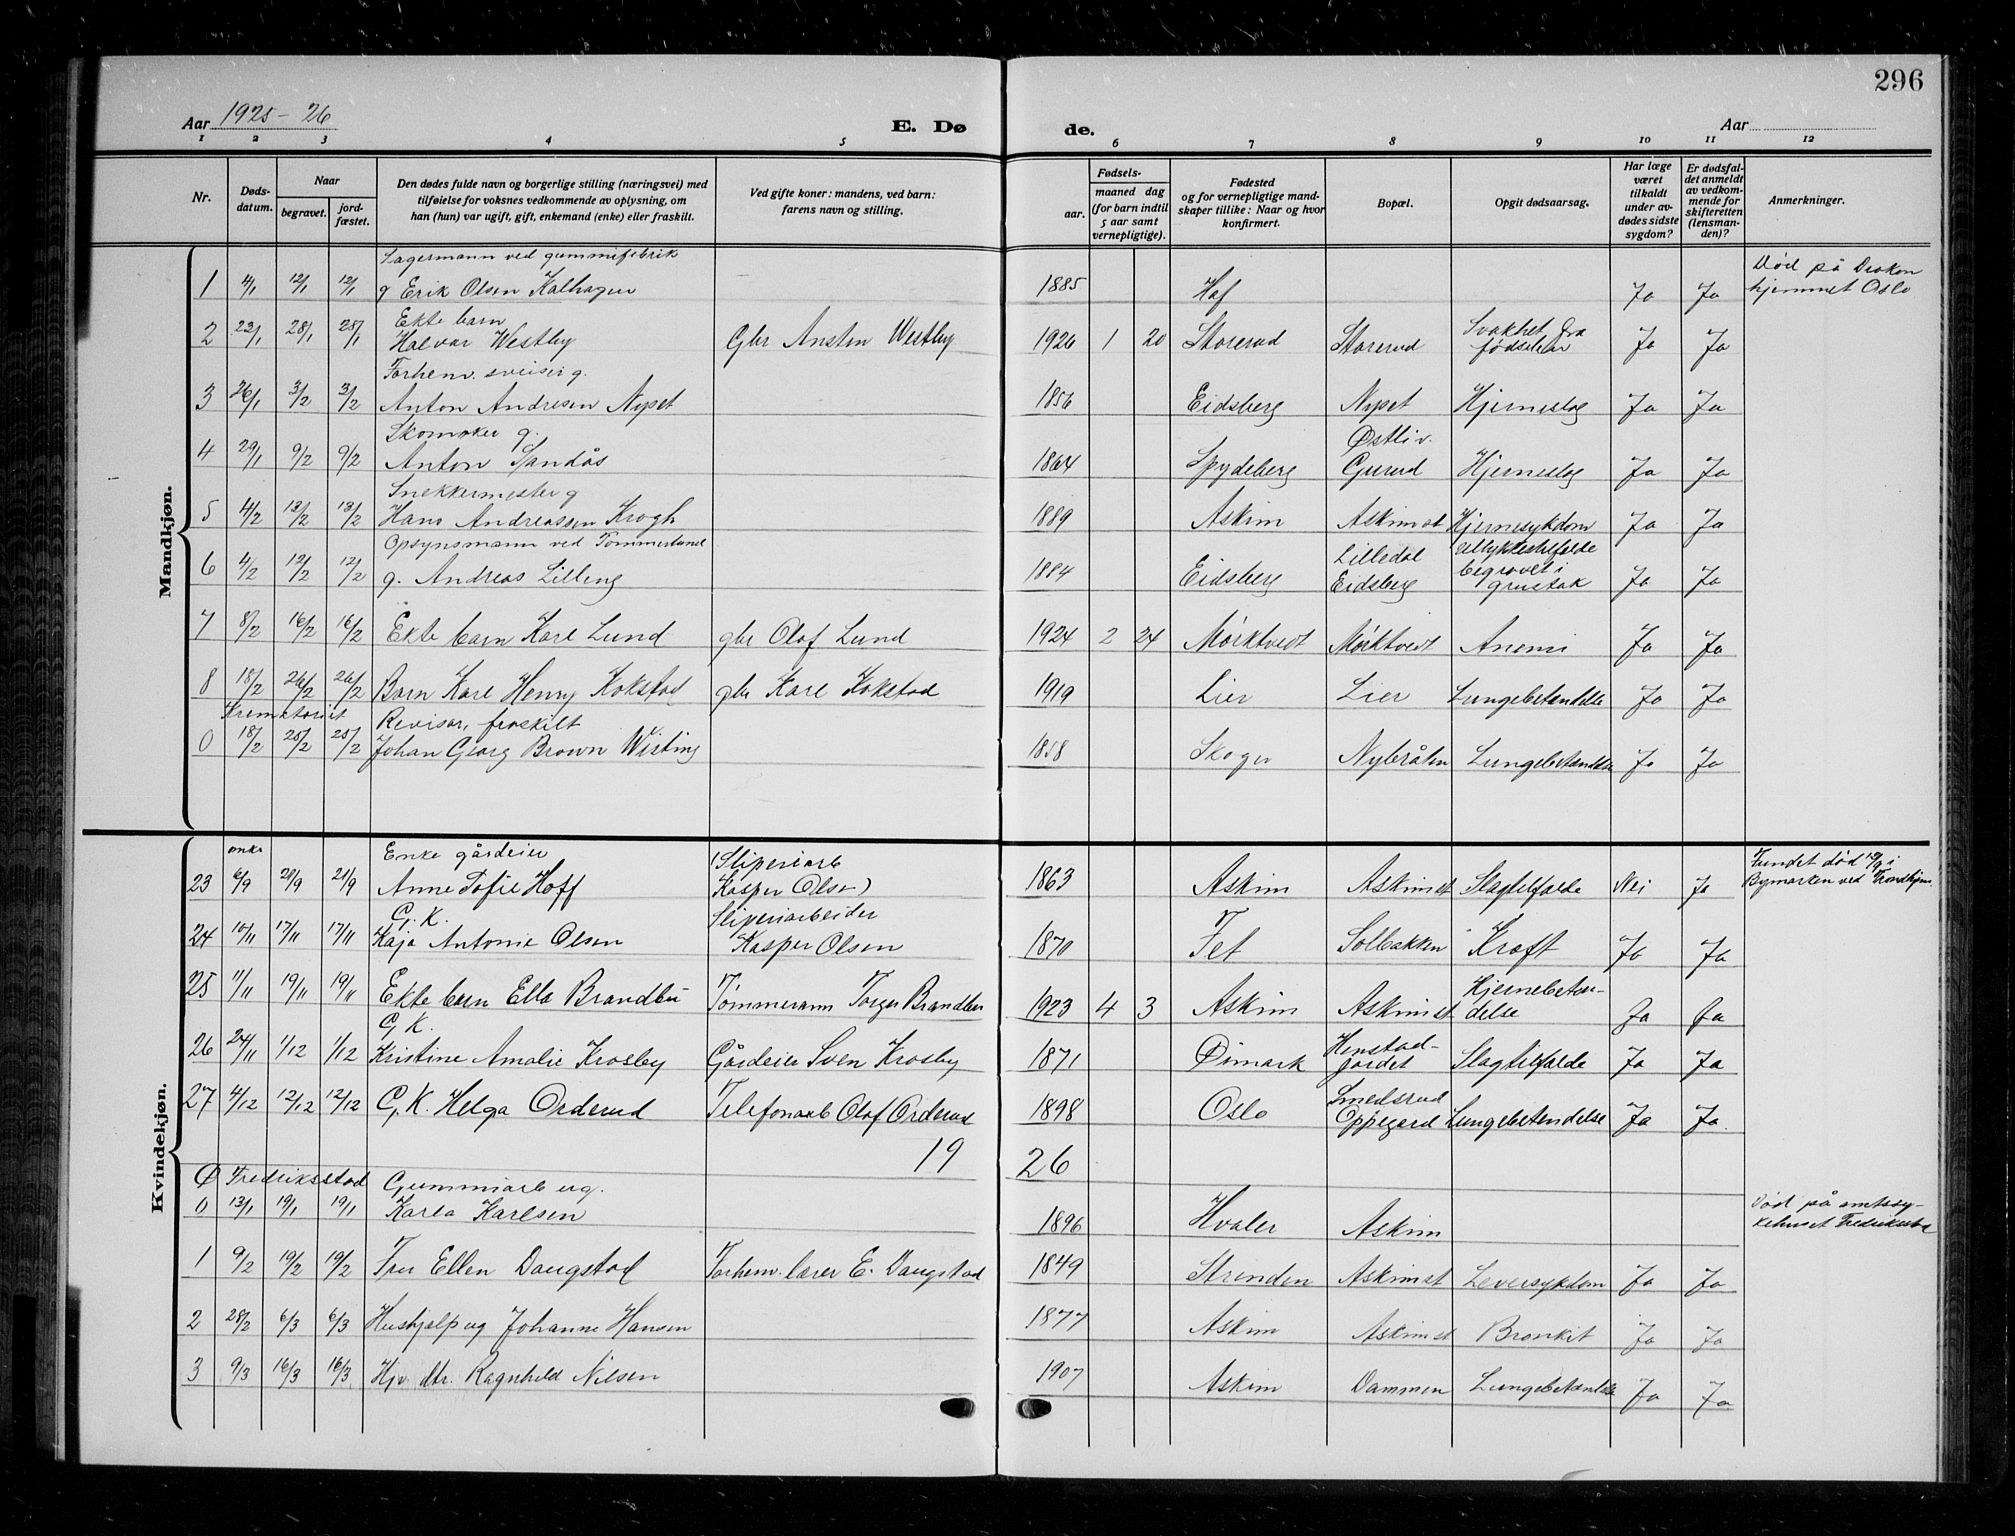 296
Aar 1925-26
E. Dø de.
Aar
1 2 3 4 5 6 7 8 9 10 11 12
Nr.
Døds-datum.
Naar
begravet.
jord-fæstet.
Den dødes fulde navn og borgerlige stilling (næringsvei) med
tilføielse for voksnes vedkommende av oplysning, om
han (hun) var ugift, gift, enkemand (enke) eller fraskilt.
Ved gifte koner: mandens, ved barn:
farens navn og stilling.
Fødsels-
aar.
maaned dag
(for barn indtil
5 aar samt
vernepligtige).
Fødested
og for vernepligtige mand-
skaper tillike: Naar og hvor
konfirmert.
Bopæl.
Opgit dødsaarsag.
Har læge
været
tilkaldt
under av-
dødes sidste
sygdom?
Er dødsfal-
det anmeldt
av vedkom-
mende for
skifteretten
(lensman-
den)?
Anmerkninger.
Mandkjøn.
Lagermann ved gummifabrik Død på Diakon
1 4/1 12/1 12/1 g Erik Olsen Kalhagen 1885 Haf Ja Ja hjemmet Oslo
Ekte barn Svakhet fra
2 23/1 28/1 28/1 Halvar Westby Gbr Ansten Westby 1926 1 20 Storerud Storerud fødselen Ja Ja
Forhenv. sveiser g.
3 26/1 3/2 3/2 Anton Andresen Nypet 1856 Eidsberg Nypet Hjerneslag Ja Ja
Skomaker g. Østliv.
4 29/1 9/2 9/2 Anton Sandås 1864 Spydeberg Gurud Hjerneslag Ja Ja
Snekkermester g
5 4/2 13/2 13/2 Hans Andreassen Krogh 1889 Askim Askim st Hjernesykdom Ja Ja
Opsynsmann ved Tømmerlund Lilledal Ulykkestilfælde begravet i
6 4/2 12/2 12/2 g. Andreas Lilleng 1884 Eidsberg Eidsberg grustak Ja Ja
7 8/2 16/2 16/2 Ekte barn Kåre Lund gbr Olaf Lund 1924 2 24 Mørktvedt Mørktvedt Anemi Ja Ja
8 18/2 26/2 26/2 Barn Kåre Henry Kokstad gbr Kåre Kokstad 1919 Lier Lier Lungebetændelse Ja Ja
Krematoriet Revisor, fraskilt
0 18/2 25/2 25/2 Johan Georg Brown Wisting 1858 Skoger Nybråten Lungebetændelse Ja Ja
Kvindekjøn.
Enke gårdeier (Sliperiarb Fundet død 19/9 i
23 6/9 21/9 21/9 Anne Sofie Hoff Kasper Olsen) 1863 Askim Askim st Slagtilfælde Nei Ja Bymarken ved Trondhjem
G. K. Sliperiarbeider
24 10/11 17/11 17/11 Kaja Antonie Olsen Kasper Olsen 1870 Fet Solbakken Kræft Ja Ja
Hjernebeten-
25 11/11 19/11 19/11 Ekte barn Ella Brandbu Tømmermann Torger Brandbu 1923 4 3 Askim Askim st delse Ja Ja
G K. Henstad-
26 24/11 1/12 1/12 Kristine Amalie Krosby Gårdeier Sven Krosby 1871 Øimark jordet Slagtilfælde Ja Ja
Smedsrud
27 4/12 12/12 12/12 G. K. Helga Orderud Telefonarb Olaf Orderud 1898 Oslo Oppegård Lungebetendelse Ja Ja.
19 26
Ø Fredriksstad Gummiarb ug. Død på amtssy-
0 13/1 19/1 19/1 Karla Karlsen 1896 Hvaler Askim kehuset Fredrikstad
1 9/2 19/2 19/2 Fru Ellen Daugstad Forhenv. lærer E. Daugstad 1849 Strinden Askim st Leversykdom Ja Ja
2 28/2 6/3 6/3 Hushjelp ug Johanne Hansen 1877 Askim Askim st Bronkit Ja Ja
3 9/3 16/3 16/3 Hjv. dtr. Ragnhild Nilsen 1907 Askim Dammen Lungebetændelse Ja Ja